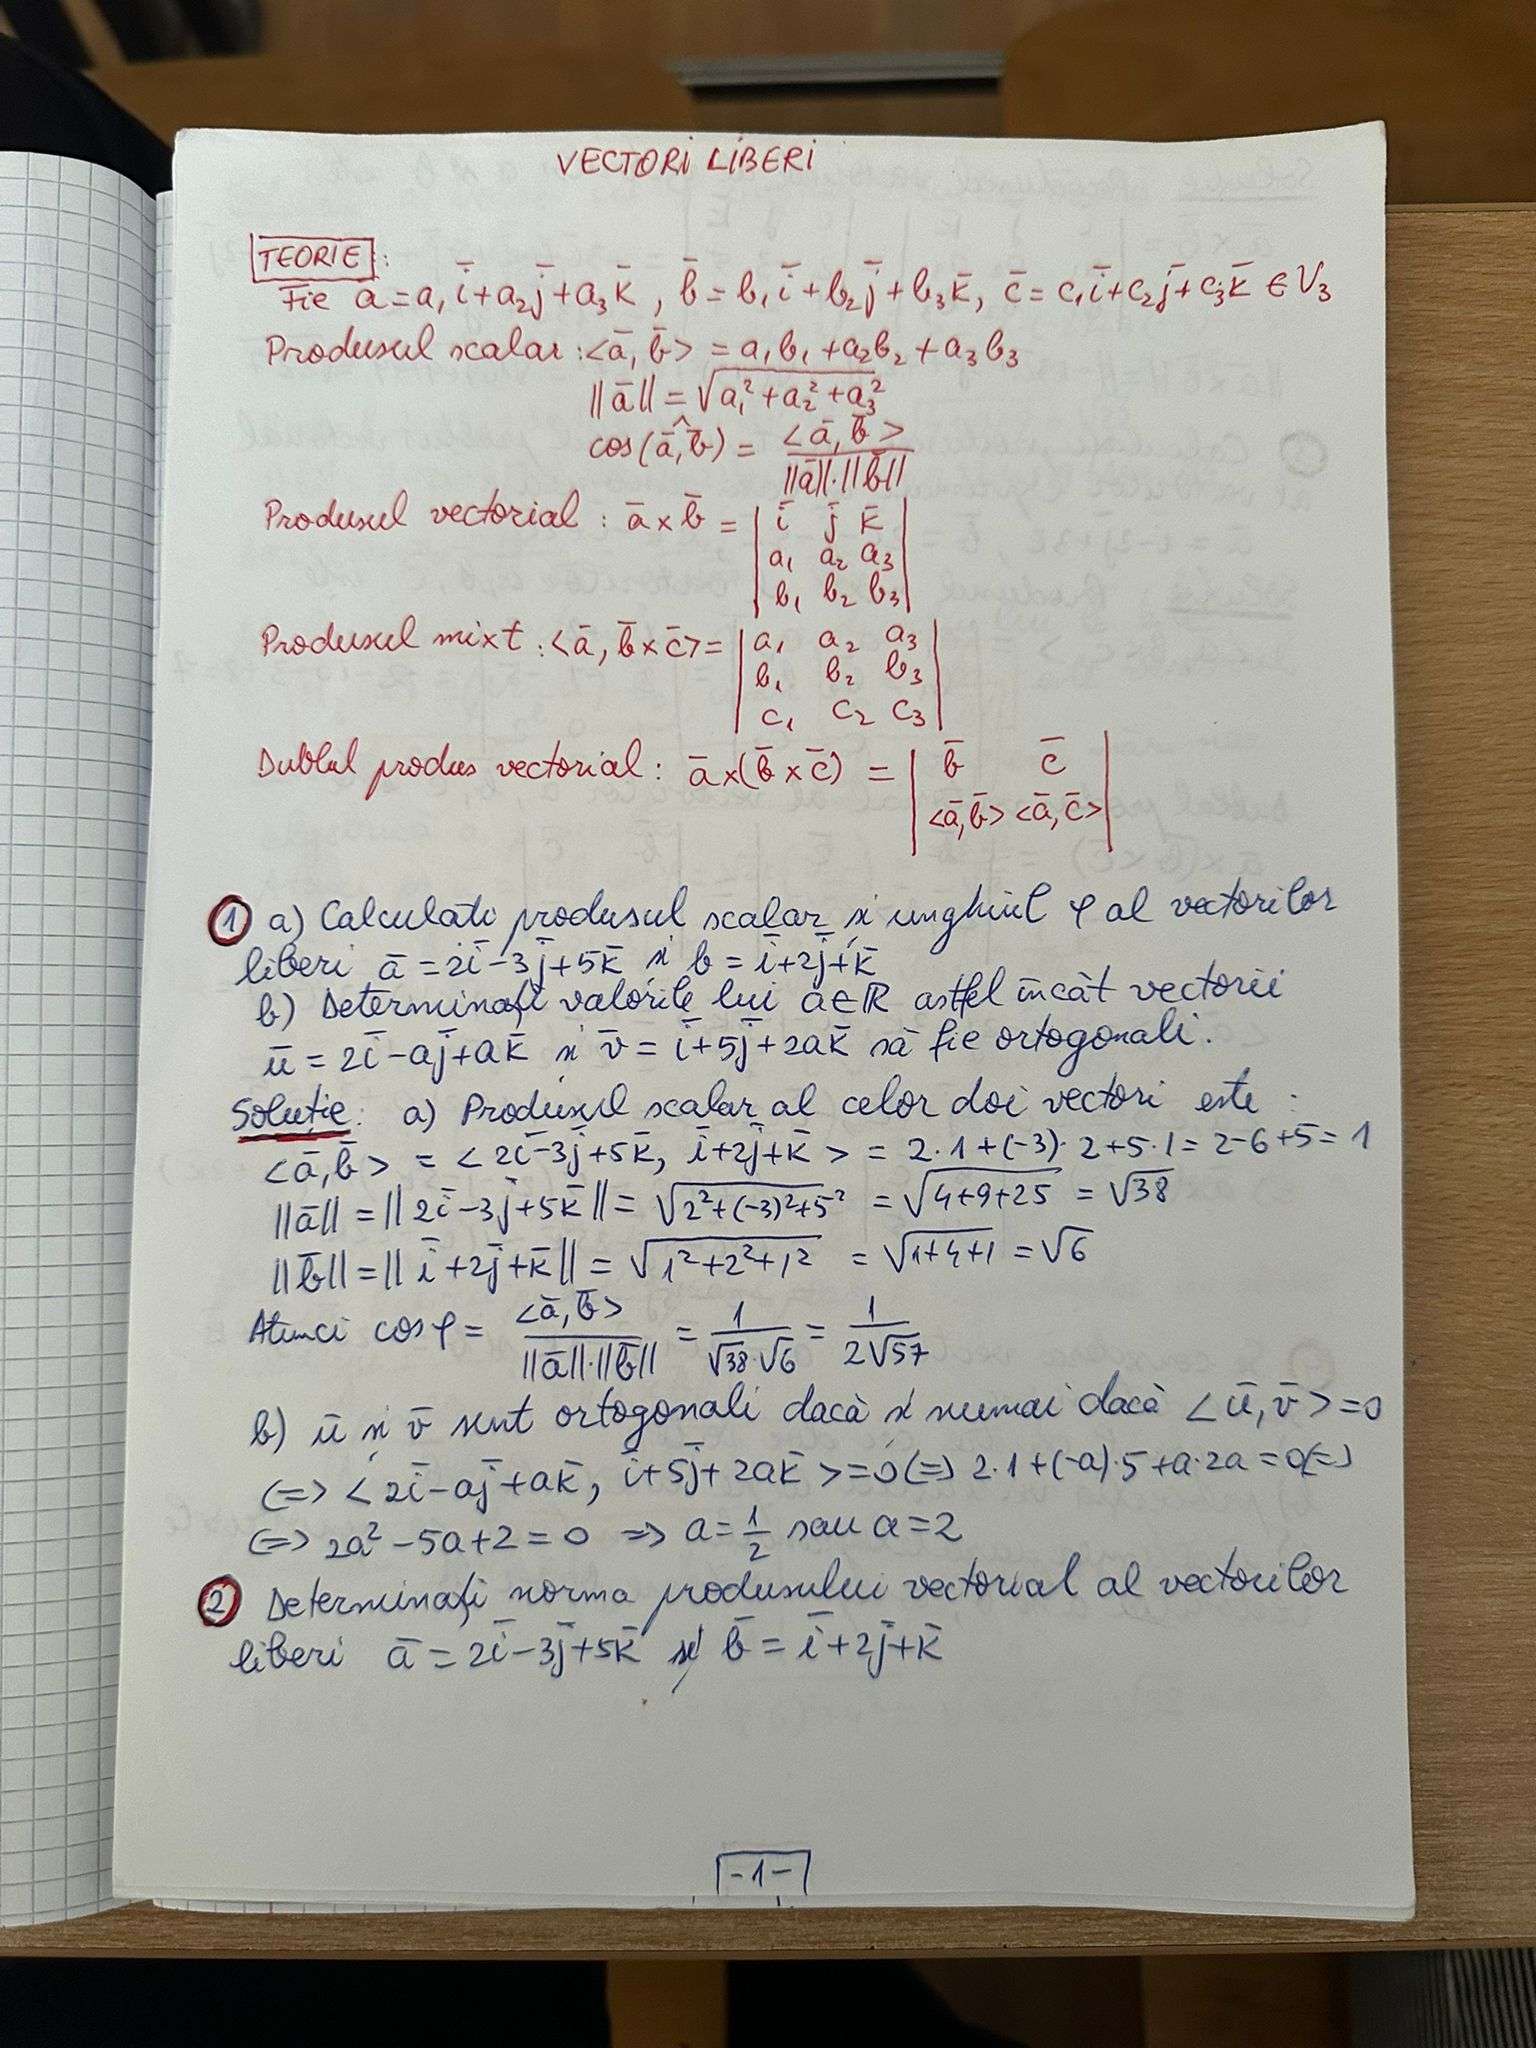 VECTORI LIBERI
TEORIE:
Fie ā = a₁ī + a₂j̄ + a₃k̄, b̄ = b₁ī + b₂j̄ + b₃k̄, c̄ = c₁ī + c₂j̄ + c₃k̄ ∈ V₃
Produsul scalar: <ā, b̄> = a₁b₁ + a₂b₂ + a₃b₃
||ā|| = √(a₁² + a₂² + a₃²)
cos(ā,^b̄) = <ā, b̄> / (||ā||·||b̄||)
Produsul vectorial: ā × b̄ = | ī j̄ k̄ |
| a₁ a₂ a₃ |
| b₁ b₂ b₃ |
Produsul mixt: <ā, b̄ × c̄> = | a₁ a₂ a₃ |
| b₁ b₂ b₃ |
| c₁ c₂ c₃ |
Dublul produs vectorial: ā × (b̄ × c̄) = | b̄ c̄ |
| <ā,b̄> <ā,c̄> |
① a) Calculati produsul scalar și unghiul φ al vectorilor
liberi ā = 2ī - 3j̄ + 5k̄ și b = ī + 2j̄ + k̄
b) Determinați valorile lui a ∈ ℝ astfel încât vectorii
ū = 2ī - aj̄ + ak̄ și v̄ = ī + 5j̄ + 2ak̄ să fie ortogonali.
Soluție: a) Produsul scalar al celor doi vectori este:
<ā, b̄> = <2ī - 3j̄ + 5k̄, ī + 2j̄ + k̄> = 2·1 + (-3)·2 + 5·1 = 2 - 6 + 5 = 1
||ā|| = ||2ī - 3j̄ + 5k̄|| = √(2² + (-3)² + 5²) = √(4+9+25) = √38
||b̄|| = ||ī + 2j̄ + k̄|| = √(1² + 2² + 1²) = √(1+4+1) = √6
Atunci cos φ = <ā, b̄> / (||ā||·||b̄||) = 1/(√38·√6) = 1/(2√57)
b) ū și v̄ sunt ortogonali dacă și numai dacă <ū, v̄> = 0
(=> <2ī - aj̄ + ak̄, ī + 5j̄ + 2ak̄> = 0 (=> 2·1 + (-a)·5 + a·2a = 0 (=>
(=> 2a² - 5a + 2 = 0 => a = 1/2 sau a = 2
② Determinați norma produsului vectorial al vectorilor
liberi ā = 2ī - 3j̄ + 5k̄ și b̄ = ī + 2j̄ + k̄
-1-